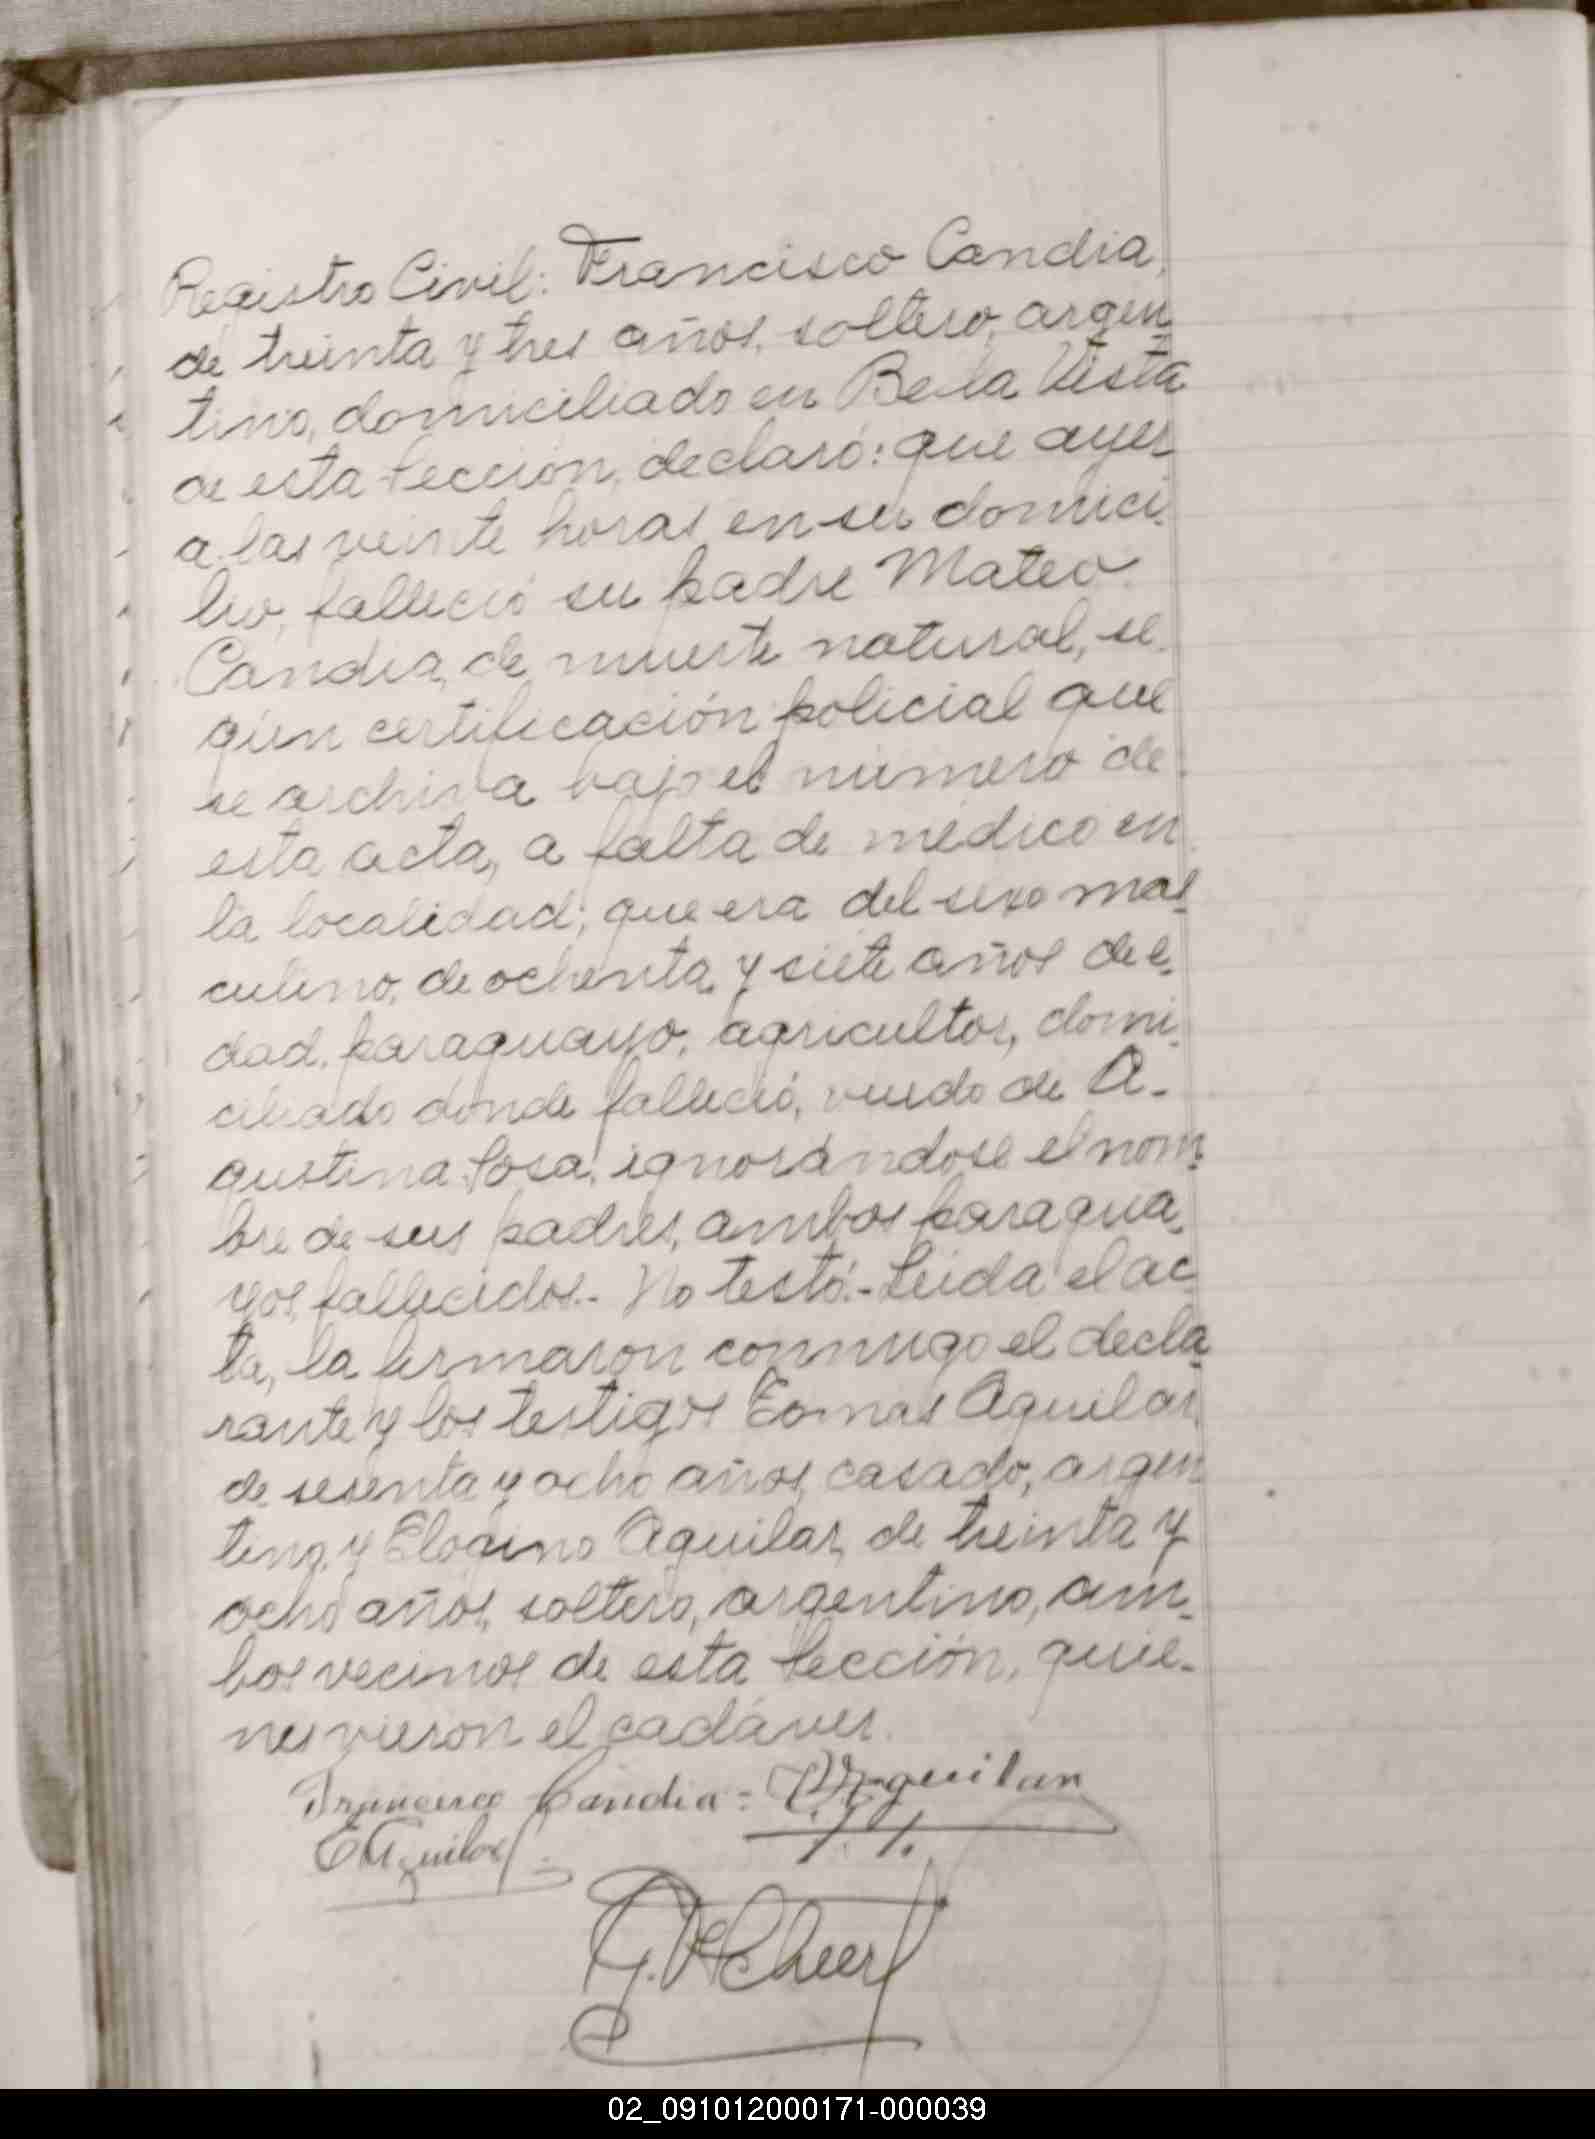 Registro Civil: Francisco Candia,
de treinta y tres años, soltero, argen-
tino, domiciliado en Bella Vista
de esta Sección, declaró: que ayer
a las veinte horas en su domici-
lio, falleció su padre Mateo
Candia, de muerte natural, se-
gún certificación policial que
se archiva bajo el número de
esta acta, a falta de médico en
la localidad; que era del sexo mas-
culino, de ochenta y siete años de e-
dad, paraguayo, agricultor, domi-
ciliado donde falleció, viudo de A-
gustina Sosa, ignorándose el nom-
bre de sus padres, ambos paragua-
yos, fallecidos.- No testó.- Leida el ac-
ta, la firmaron conmigo el decla-
rante y los testigos Tomas Aguilar,
de sesenta y ocho años, casado, argen-
tino, y Elogino Aguilar, de treinta y
ocho años, soltero, argentino, am-
bos vecinos de esta Sección, quie-
nes vieron el cadáver.
Francisco Candia = Aguilar
E Aguilar
02_091012000171-000039